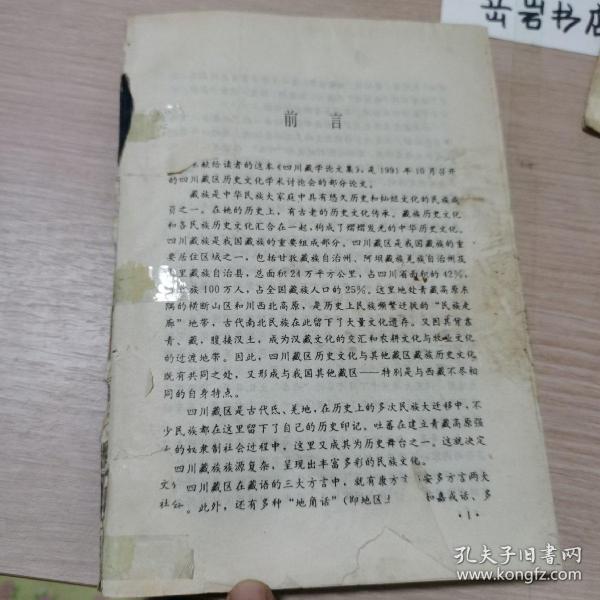 岩岩书店
前言
献给读者的这本《四川藏学论文集》，是1991年10月召开
的四川藏区历史文化学术讨论会的部分论文。
藏族是中华民族大家庭中具有悠久历史和灿烂文化的民族成
员之一。在她的历史上，有古老的历史文化传承。藏族历史文化
和各民族历史文化汇合在一起，构成了熠熠发光的中华历史文化。
四川藏族是我国藏族的重要组成部分。四川藏区是我国藏族的重
要居住区域之一，包括甘孜藏族自治州、阿坝藏族羌族自治州及
里藏族自治县，总面积24万平方公里，占四川省面积的42%，
族100万人，占全国藏族人口的25%。这里地处青藏高原东
隅的横断山区和川西北高原，是历史上民族频繁迁拔的“民族走
廊”地带，古代南北民族在此留下了大量文化遗存。又因其背靠
青、藏，腹接汉土，成为汉藏文化的交汇和农耕文化与牧业文化
的过渡地带。因此，四川藏区历史文化与其他藏区藏族历史文化
既有共同之处，又形成与我国其他藏区——特别是与西藏不尽相
同的自身特点。
四川藏区是古代氐、羌地，在历史上的多次民族大迁移中，不
少民族都在这里留下了自己的历史印记。吐蕃在建立青藏高原强
的奴隶制社会过程中，这里又成其为历史舞台之一。这就决定
四川藏族族源复杂，呈现出丰富多彩的民族文化。
四川藏区在藏语的三大方言中，就有康方 安多方言两大
。此外，还有多种“地角话”（即地区 和嘉戎话、多
·1·
孔夫子旧书网
www.kongfz.com